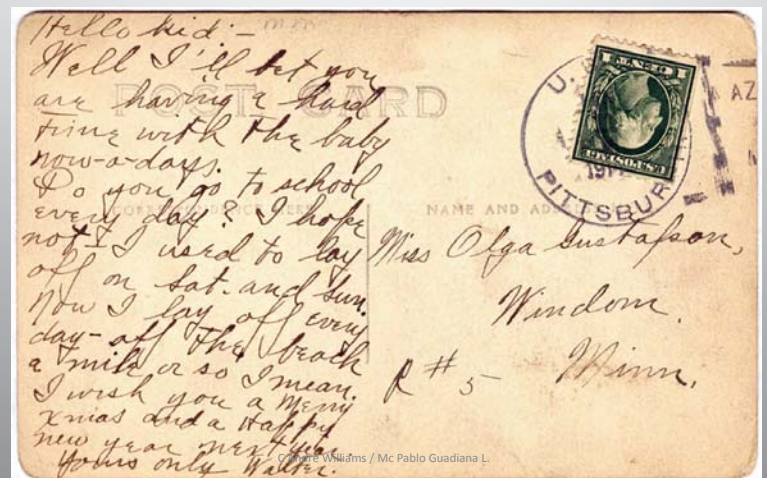 Hello kid:-
Well I'll bet you
are having a hard
time with the baby
now-a-days.
Do you go to school
every day? I hope
not I used to lay
off on Sat. and Sun.
Now I lay off every
day- off the beach
a mile or so I mean.
I wish you a Merry
Xmas and a Happy
new year next year
Yours only Walter.
POST CARD
NAME AND
Miss Olga Gustafson,
Windom.
Minn,
R # 5
U.
PITTSBUR
AZ
U.S. POSTAGE
1 CENT 1
Williams / Mc Pablo Guadiana L.